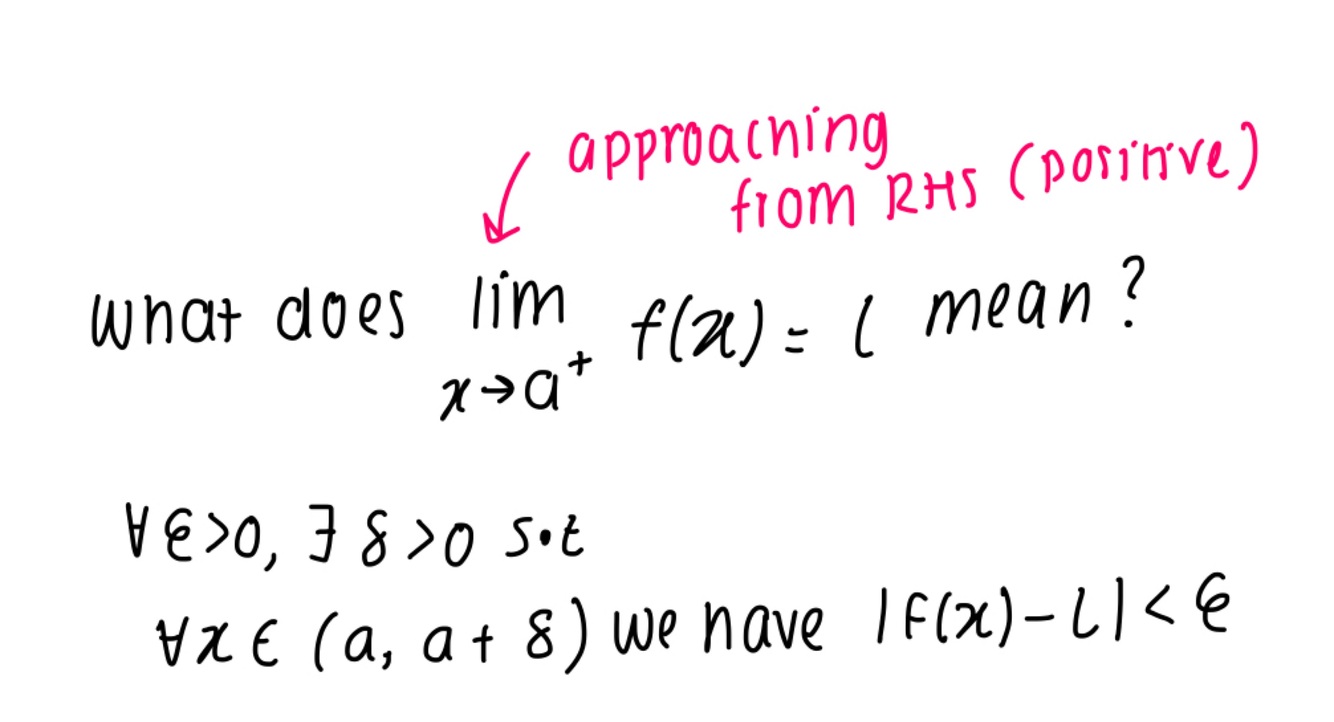 approaching
from RHS (positive)
What does lim f(x) = l mean?
x→a⁺
∀ϵ>0, ∃ δ>0 s.t
∀x ∈ (a, a + δ) we have |f(x) - l| < ϵ